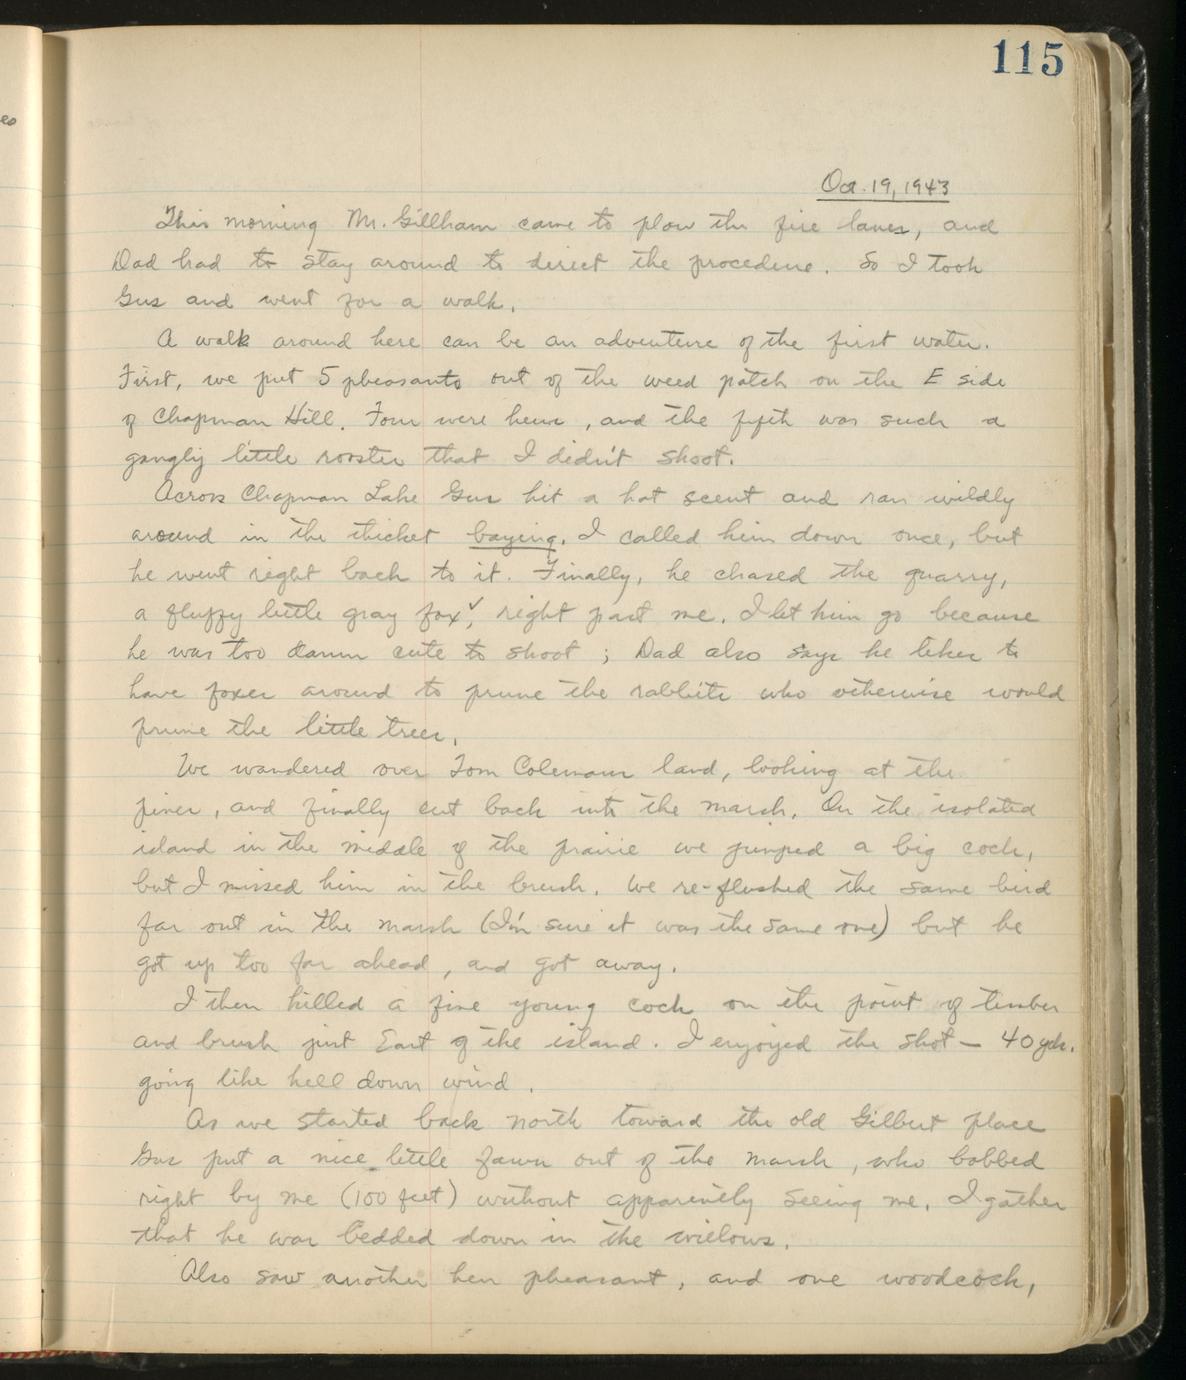 115
Oct. 19, 1943
This morning Mr. Gillham came to plow the fire lanes, and
Dad had to stay around to direct the procedure. So I took
Gus and went for a walk.
A walk around here can be an adventure of the first water.
First, we put 5 pheasants out of the weed patch on the E side
of Chapman Hill. Four were hens, and the fifth was such a
gangly little rooster that I didn't shoot.
Across Chapman Lake Gus hit a hot scent and ran wildly
around in the thicket baying. I called him down once, but
he went right back to it. Finally, he chased the quarry,
a fluffy little gray fox✓, right past me. I let him go because
he was too damn cute to shoot; Dad also says he likes to
have foxes around to prune the rabbits who otherwise would
prune the little trees.
We wandered over Tom Coleman land, looking at the
pines, and finally cut back into the marsh. On the isolated
island in the middle of the prairie we jumped a big cock,
but I missed him in the brush. We re-flushed the same bird
far out in the marsh (I'm sure it was the same one) but he
got up too far ahead, and got away.
I then killed a fine young cock on the point of timber
and brush just East of the island. I enjoyed the shot — 40 yds.
going like hell down wind.
As we started back north toward the old Gilbert place
Gus put a nice little fawn out of the marsh, who bobbed
right by me (100 feet) without apparently seeing me. I gather
that he was bedded down in the willows.
Also saw another hen pheasant, and one woodcock,